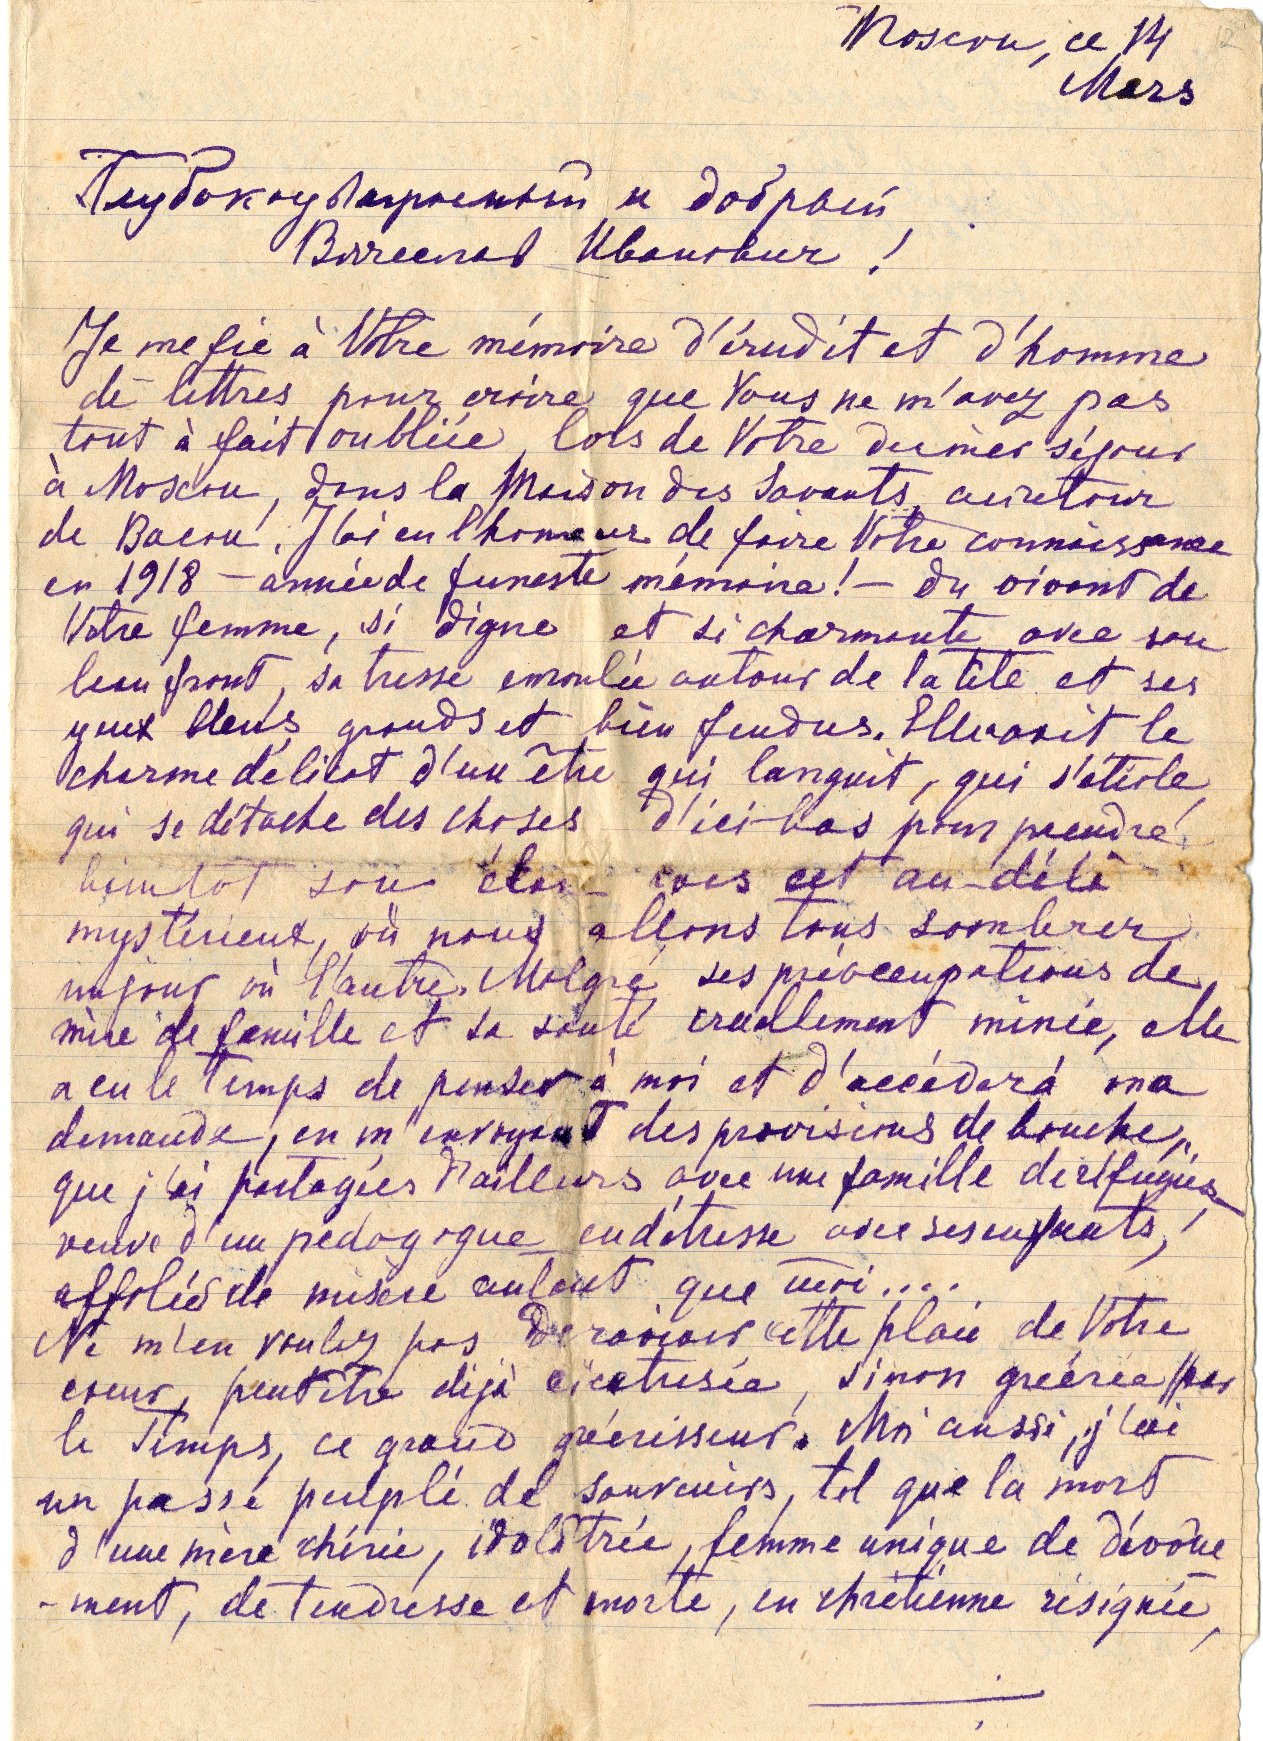 Moscou, ce 14
Mars
12
Глубокоуважаемый и добрый
Вячеслав Иванович!
Je me fie à Votre mémoire d'érudit et d'homme
de lettres pour croire que Vous ne m'avez pas
tout à fait oubliée, lors de Votre dernier séjour
à Moscou, dans la Maison des Savants, au retour
de Bacou. J'ai eu l'honneur de faire Votre connaissance
en 1918 – année de funeste mémoire! – du vivant de
Votre femme, si digne et si charmante avec son
beau front, sa tresse enroulée autour de la tête et ses
yeux bleus, grands et bien fendus. Elle avait le
charme délicat d'un être qui languit, qui s'étiole,
qui se détache des choses d'ici-bas pour prendre
bientôt son élan vers cet au-délà
mystérieux, où nous allons tous sombrer
un jour où l'autre. Malgré ses préoccupations de
mère de famille et sa santé cruellement minée, elle
a eu le temps de penser à moi et d'accéder à ma
demande, en m'envoyant des provisions de bouche,
que j'ai partagées d'ailleurs avec une famille de réfugiés
veuve d'un pédagogue en détresse avec ses enfants,
affolés de misère autant que moi....
Ne m'en voulez pas de raviver cette plaie de Votre
coeur, peut être déjà cicatrisée, sinon guérie par
le Temps, ce grand guérisseur. Moi aussi, j'ai
un passé peuplé de souvenirs, tel que la mort
d'une mère chérie, idolâtrée, femme unique de dévoue
-ment, de tendresse et morte, en chrétienne résignée,